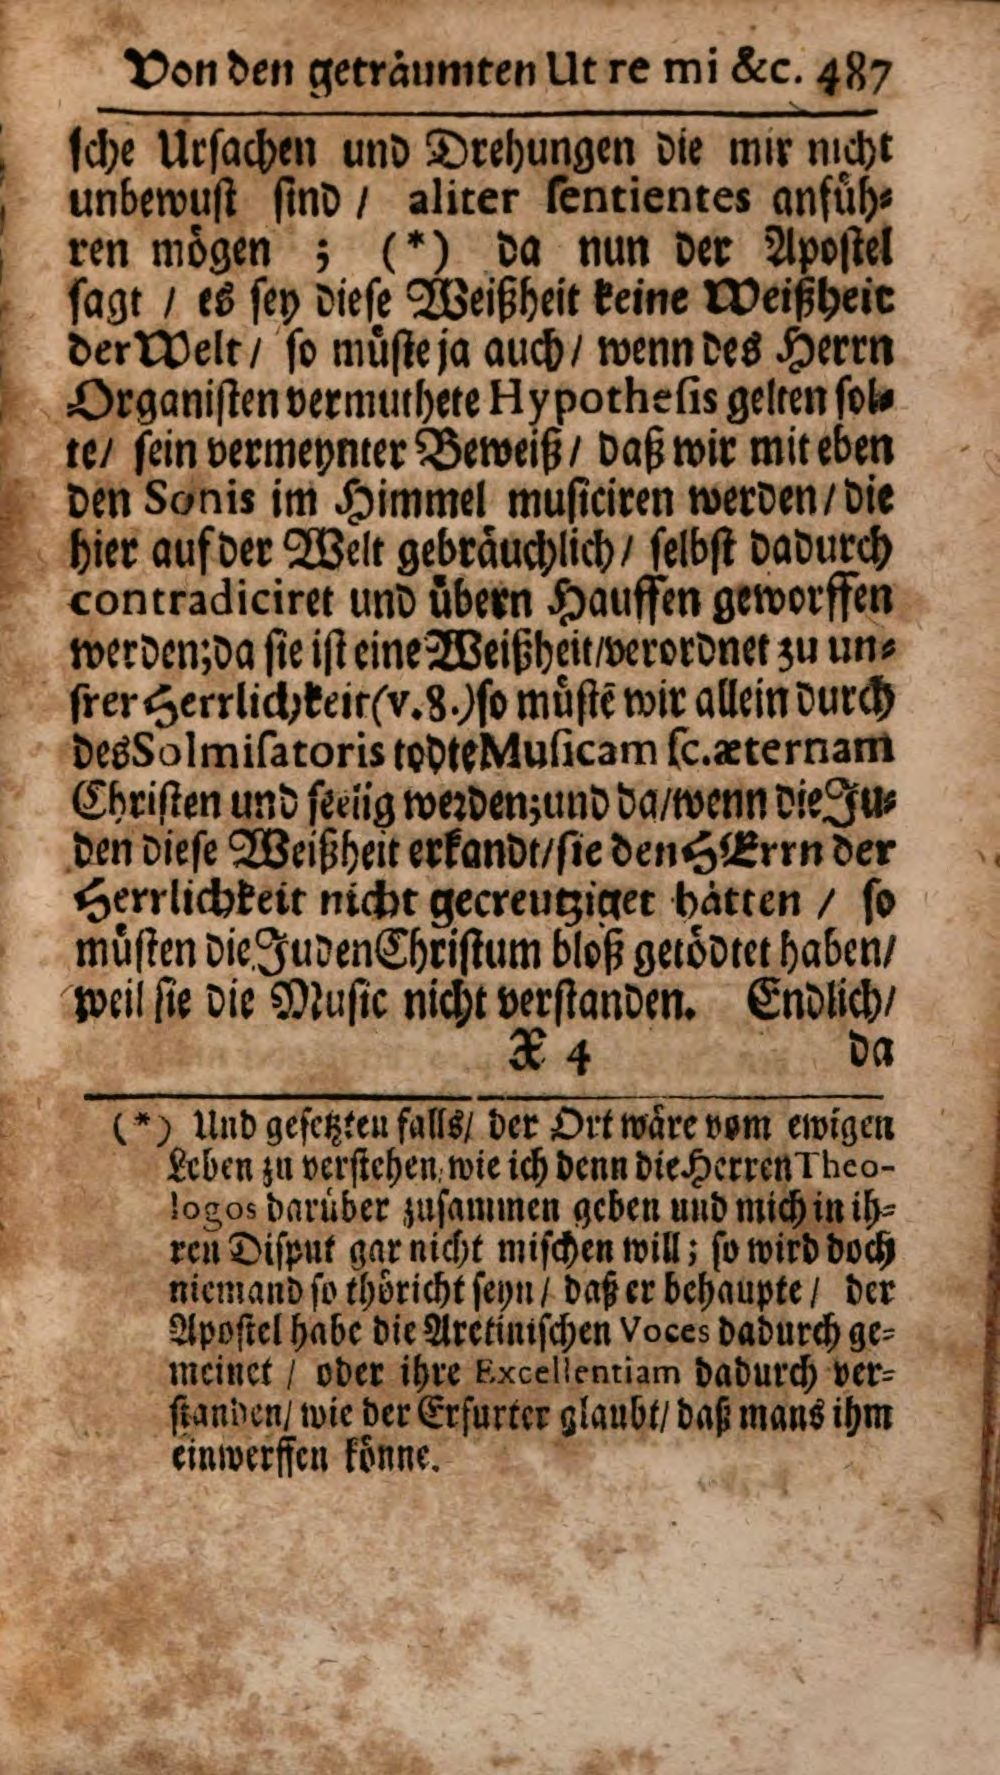 Von den geträumten Ut re mi &c. 487
sche Ursachen und Drehungen die mir nicht
unbewust sind / aliter sentientes anfüh-
ren mögen ; (*) da nun der Apostel
sagt / es sey diese Weißheit keine Weißheit
der Welt / so müste ja auch / wenn des Herrn
Organisten vermuthete Hypothesis gelten sol-
te / sein vermeynter Beweiß / daß wir mit eben
den Sonis im Himmel musiciren werden / die
hier auf der Welt gebräuchlich / selbst dadurch
contradiciret und übern Hauffen geworffen
werden; da sie ist eine Weißheit / verordnet zu un-
srer Herrlichkeit (v. 8.) so müstē wir allein durch
des Solmisatoris todte Musicam sc. æternam
Christen und seelig werden; und da / wenn die Ju-
den diese Weißheit erkandt / sie den HErrn der
Herrlichkeit nicht gecreutziget hätten / so
müsten die Juden Christum bloß getödtet haben /
weil sie die Music nicht verstanden. Endlich /
X 4 da
(*) Und gesetzten falls / der Ort wäre vom ewigen
Leben zu verstehen, wie ich denn die Herren Theo-
logos darüber zusammen geben und mich in ih-
ren Disput gar nicht mischen will; so wird doch
niemand so thöricht seyn / daß er behaupte / der
Apostel habe die Aretinischen Voces dadurch ge-
meinet / oder ihre Excellentiam dadurch ver-
standen / wie der Erfurter glaubt / daß mans ihm
einwerffen könne.